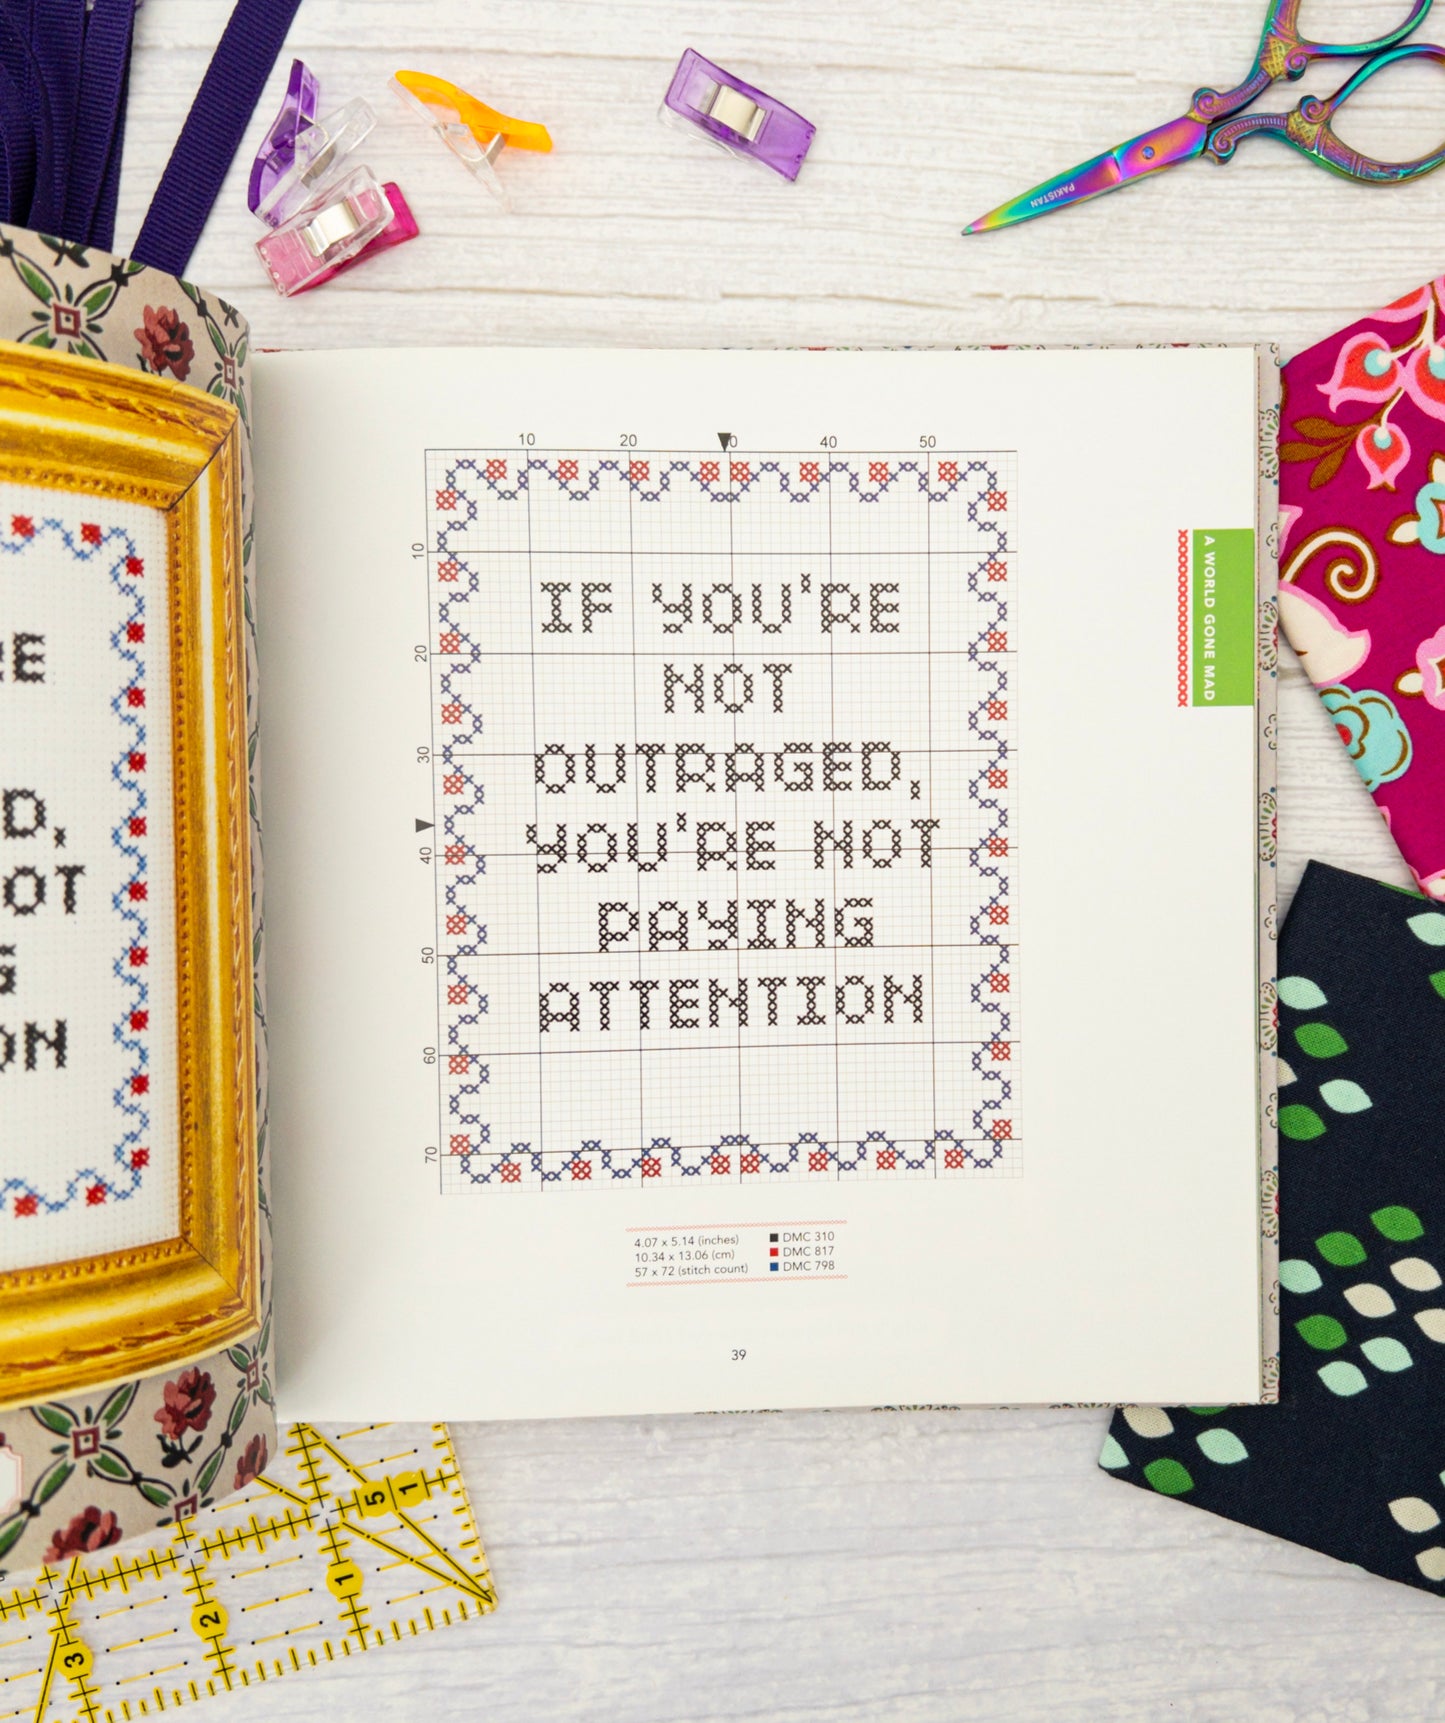 PAKISTAN
10 20 30 40 50
10
20
30
40
50
60
70
IF YOU'RE
NOT
OUTRAGED,
YOU'RE NOT
PAYING
ATTENTION
A WORLD GONE MAD
4.07 x 5.14 (inches)
10.34 x 13.06 (cm)
57 x 72 (stitch count)
DMC 310
DMC 817
DMC 798
39
D,
OT
ON
5 1
1
2
3